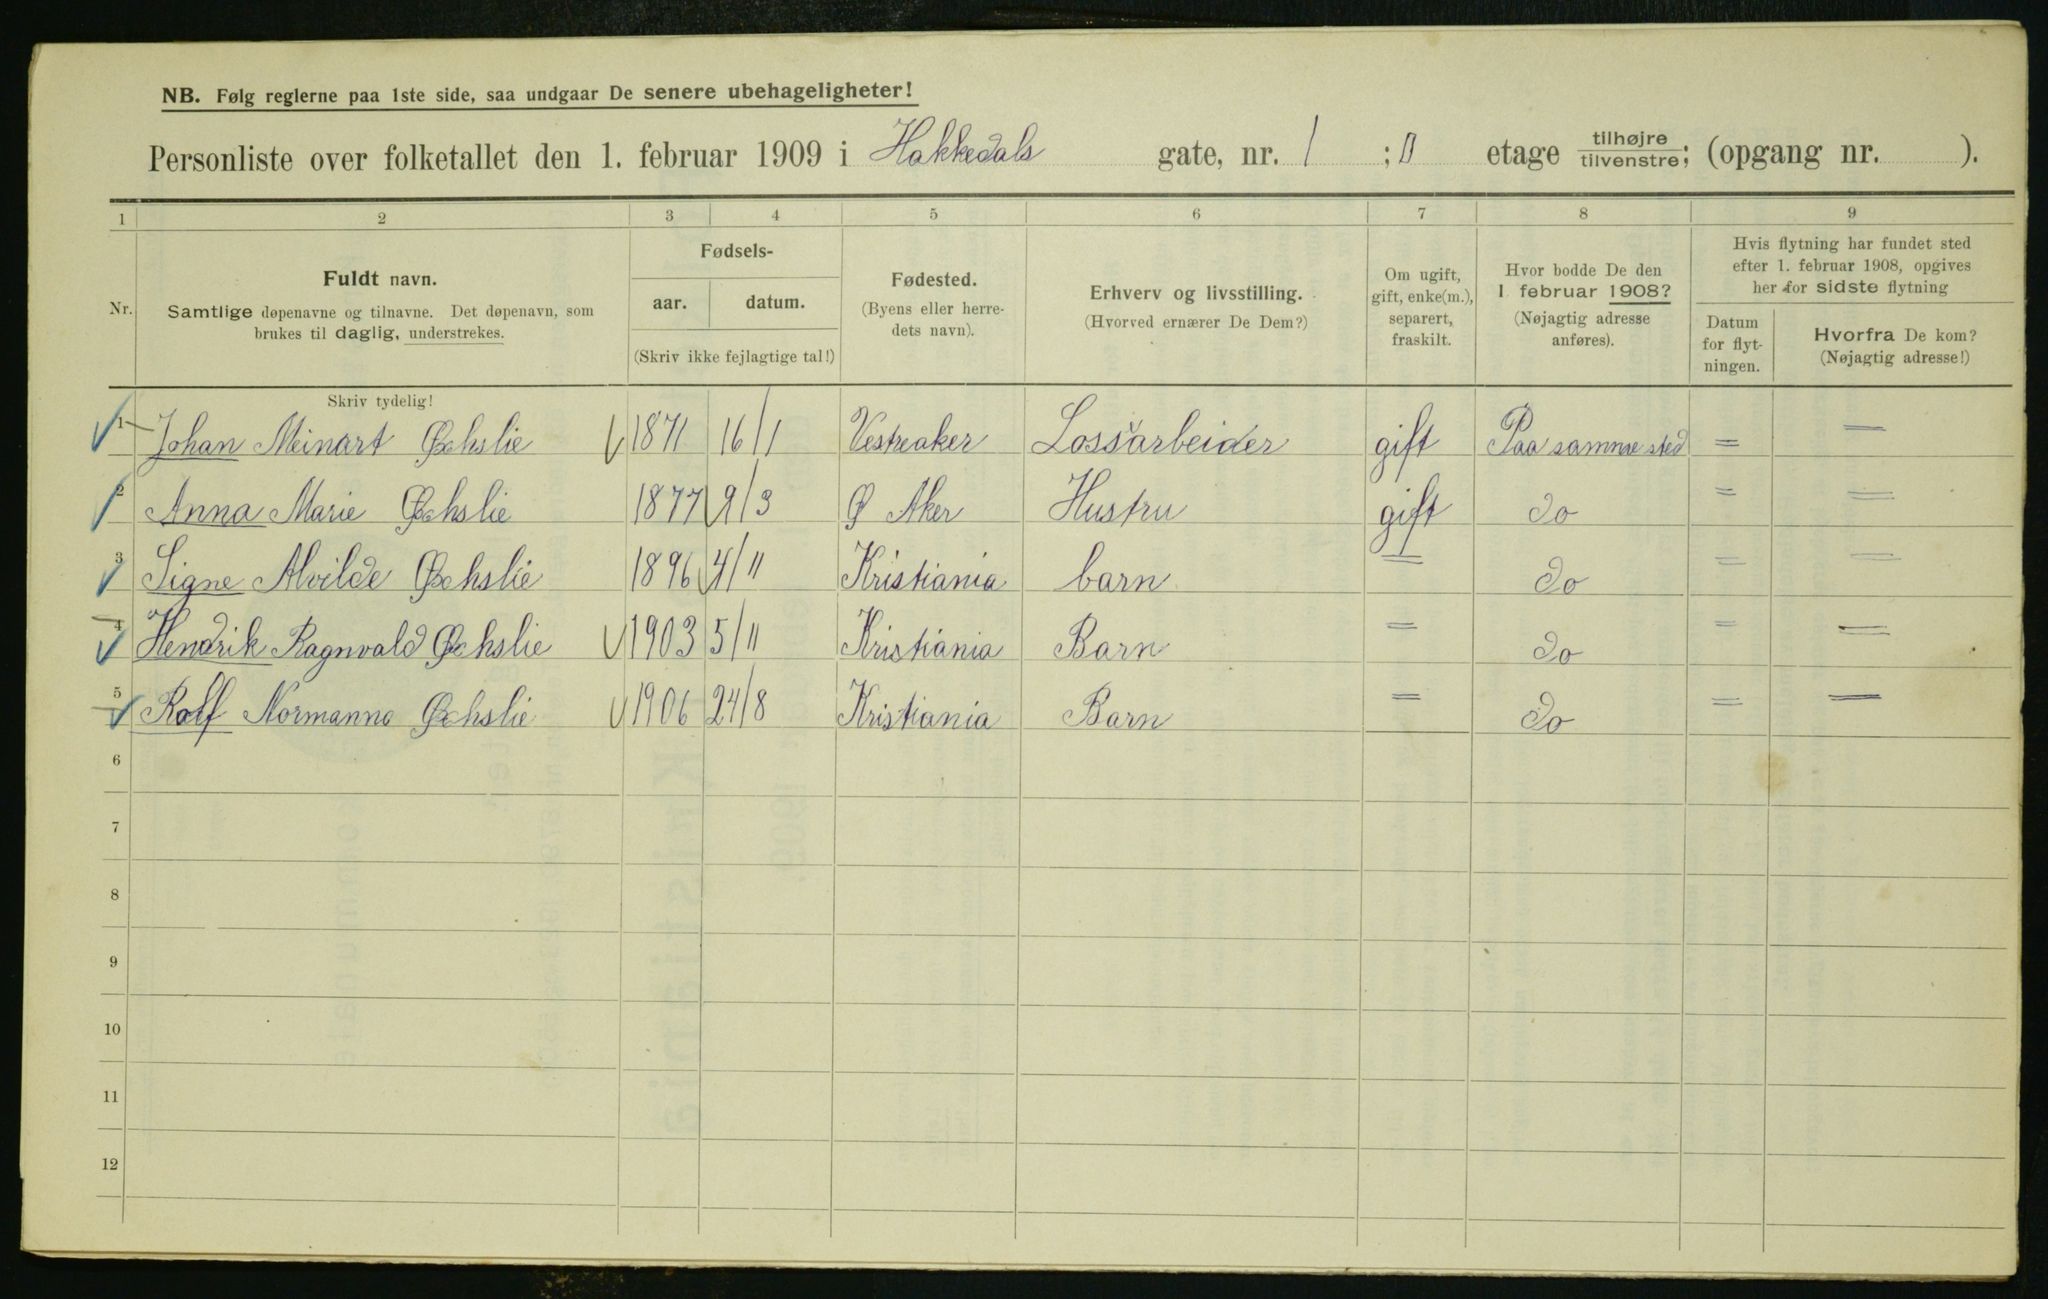 NB. Følg reglerne paa 1ste side, saa undgaar De senere ubehageligheter!
Personliste over folketallet den 1. februar 1909 i Hakkedals gate, nr. 1 ; 0 etage tilhøjre tilvenstre; (opgang nr. ).
1 2 3 4 5 6 7 8 9
Nr.
Fuldt navn.
Samtlige døpenavne og tilnavne. Det døpenavn, som
brukes til daglig, understrekes.
Fødsels-
aar. datum.
(Skriv ikke fejlagtige tal!)
Fødested.
(Byens eller herre-
dets navn).
Erhverv og livsstilling.
(Hvorved ernærer De Dem?)
Om ugift,
gift, enke(m.),
separert,
fraskilt.
Hvor bodde De den
1 februar 1908?
(Nøjagtig adresse
anføres).
Hvis flytning har fundet sted
efter 1. februar 1908, opgives
her for sidste flytning
Datum
for flyt-
ningen.
Hvorfra De kom?
(Nøjagtig adresse!)
Skriv tydelig!
1 Johan Meinart Øchslie 1871 16/1 Vestreaker Lossarbeider gift Paa samme sted = =
2 Anna Marie Øchslie 1877 9/3 Ø Aker Hustru gift do = =
3 Signe Alvilde Øchslie 1896 4/11 Kristiania barn = do = =
4 Hendrik Ragnvald Øchslie 1903 5/11 Kristiania Barn = do = =
5 Rolf Normann Øchslie 1906 24/8 Kristiania Barn = do = =
6
7
8
9
10
11
12